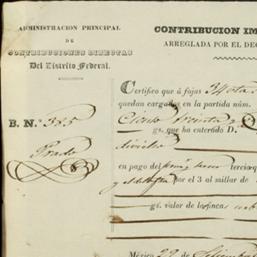 ADMINISTRACION PRINCIPAL
DE
CONTRIBUCIONES DIRECTAS
Del Distrito Federal.
B. N.º 325
Prado
CONTRIBUCION IM
ARREGLADA POR EL DEC
Certifico que á fojas 34
quedan cargados en la partida núm.
Ciento treinta y
gs. que ha enterado D.
en pago del tercio
por el 3 al millar de
gs. valor de la finca
México 22 de